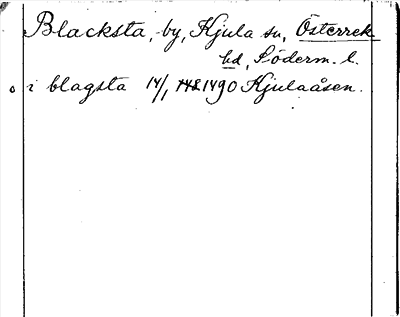 Blacksta, by, Kjula sn, Österrek
hd, Söderm. l.
i blagsta 14/1 1490 Kjulaåsen.